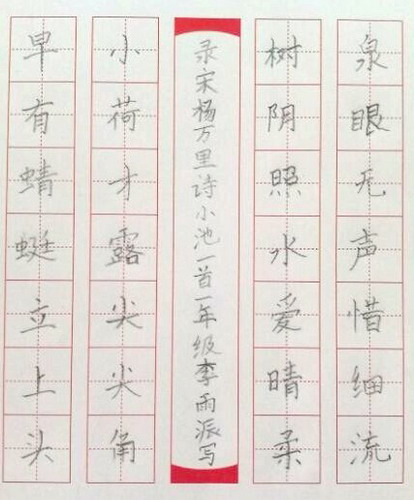 泉眼无声惜细流
树阴照水爱晴柔
录宋杨万里诗小池一首一年级李雨派写
小荷才露尖尖角
早有蜻蜓立上头